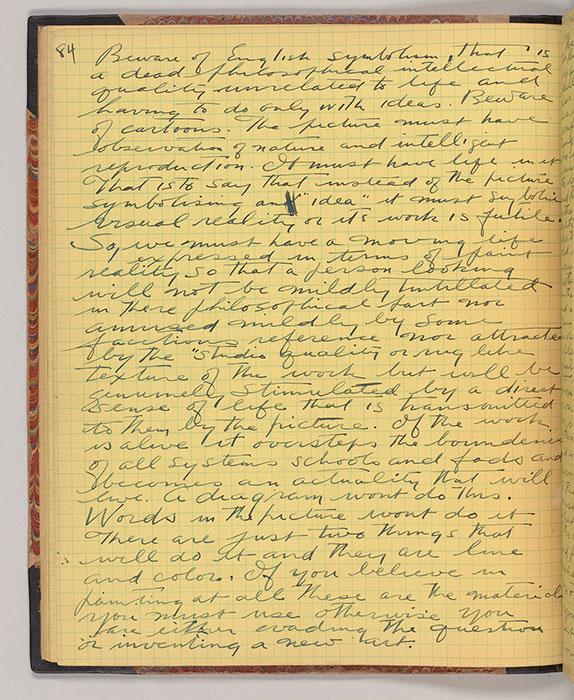 84
Beware of English symbolism, that is
a dead philosophical intellectual
quality unrelated to life and
having to do only with ideas. Beware
of cartoons. The picture must have
observation of nature and intelligent
reproduction. It must have life in it
That is to say that instead of the picture
symbolising an "idea" it must symbolise
visual reality or its work is futile.
So, we must have a moving life
expressed in terms of paint
reality so that a person looking
will not be mildly tintillated
in there philosophical part nor
amused mildly by some
factious reference nor attracted
by the "studio quality or rug like
texture of the work but will be
genuinely stimulated by a direct
sense of life that is transmitted
to them by the picture. If the work
is alive it oversteps the
of all systems schools and fads and
becomes an actuality that will
live. A diagram wont do this.
Words in the picture wont do it
There are just two things that
will do it and they are line
and color. If you believe in
painting at all these are the materials
you must use otherwise you
are either evading the question
or inventing a new "art.